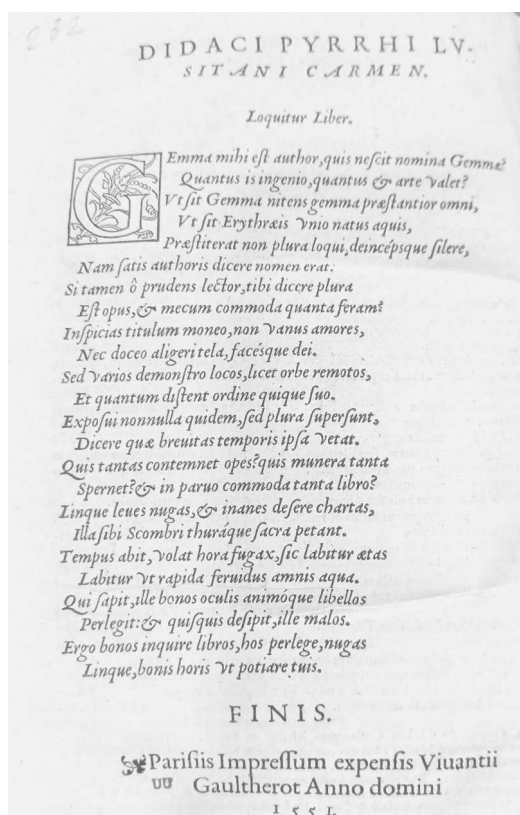 232
DIDACI PYRRHI LV-
SITANI CARMEN.
Loquitur Liber.
GEmma mihi eſt author, quis neſcit nomina Gemmæ?
Quantus is ingenio, quantus & arte valet?
Vt ſit Gemma nitens gemma præſtantior omni,
Vt ſit Erythræis vnio natus aquis,
Præſtiterat non plura loqui, deincépsque ſilere,
Nam ſatis authoris dicere nomen erat.
Si tamen ô prudens lector, tibi dicere plura
Eſt opus, & mecum commoda quanta feram?
Inſpicias titulum moneo, non vanus amores,
Nec doceo aligeri tela, facésque dei.
Sed varios demonſtro locos, licet orbe remotos,
Et quantum diſtent ordine quique ſuo.
Expoſui nonnulla quidem, ſed plura ſuperſunt,
Dicere quæ breuitas temporis ipſa vetat.
Quis tantas contemnet opes? quis munera tanta
Spernet? & in paruo commoda tanta libro?
Linque leues nugas, & inanes deſere chartas,
Illa ſibi Scombri thuráque ſacra petant.
Tempus abit, volat hora fugax, ſic labitur ætas
Labitur vt rapida feruidus amnis aqua.
Qui ſapit, ille bonos oculis animóque libellos
Perlegit: & quiſquis deſipit, ille malos.
Ergo bonos inquire libros, hos perlege, nugas
Linque, bonis horis vt potiare tuis.
FINIS.
Pariſiis Impreſſum expenſis Viuantii
Gaultherot Anno domini
1551.